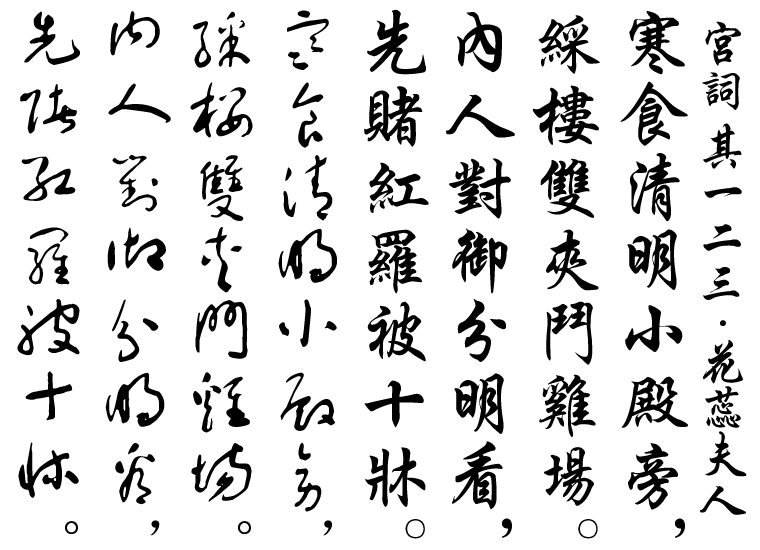 宮詞 其一二三·花蕊夫人
寒食清明小殿旁，
綵樓雙夾鬥雞場。
內人對御分明看，
先賭紅羅被十牀。
寒食清明小殿旁，
綵樓雙夾鬥雞場。
內人對御分明看，
先賭紅羅被十牀。